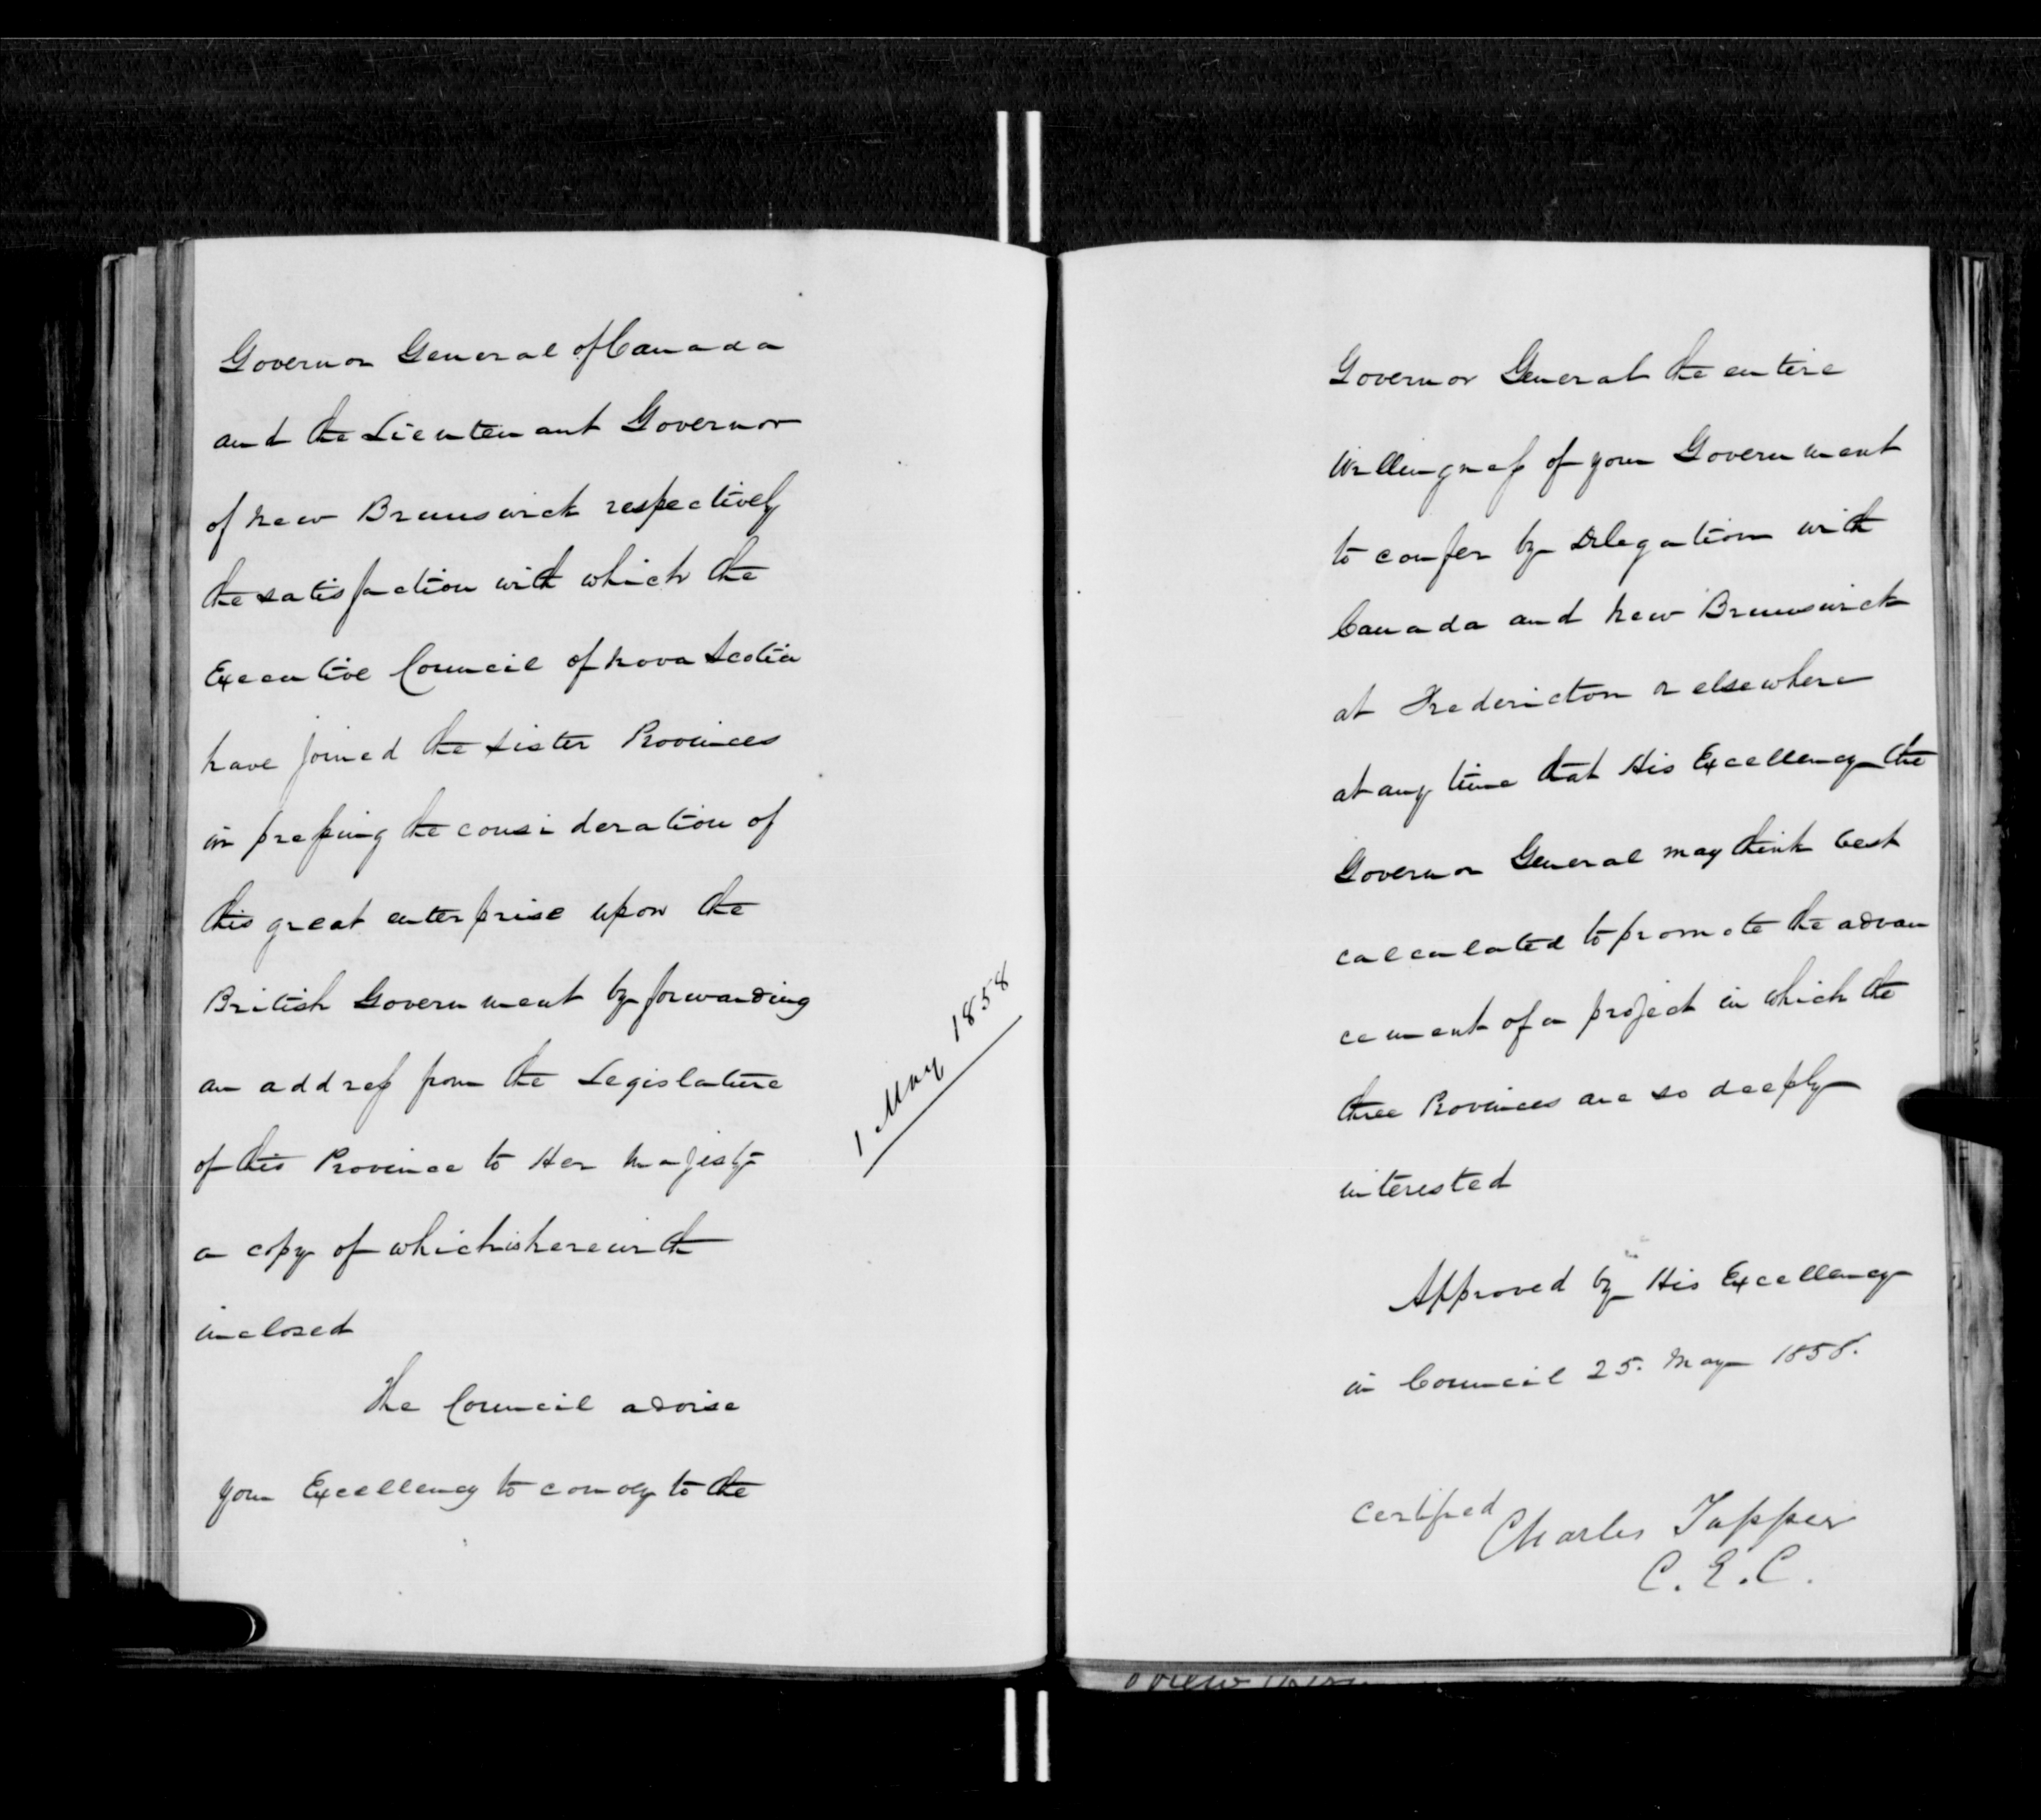 Governor General of Canada
and the Lieutenant Governor
of New Brunswick respectively
the satisfaction with which the
Executive Council of Nova Scotia
have joined the Sister Provinces
in pressing the consideration of
this great enterprise upon the
British Government by forwarding
an address from the Legislature
of this Province to Her Majesty
a copy of which is herewith
inclosed
The Council advise
your Excellency to convey to the
1 May 1858
Governor General the entire
Willingness of your Government
to confer by Delegation with
Canada and New Brunswick
at Fredericton or elsewhere
at any time that His Excellency the
Governor General may think best
calculated to promote the advan
cement of a project in which the
three Provinces are so deeply
interested
Approved by His Excellency
in Council 25. May 1858.
Certified
Charles Tupper
C.E.C.